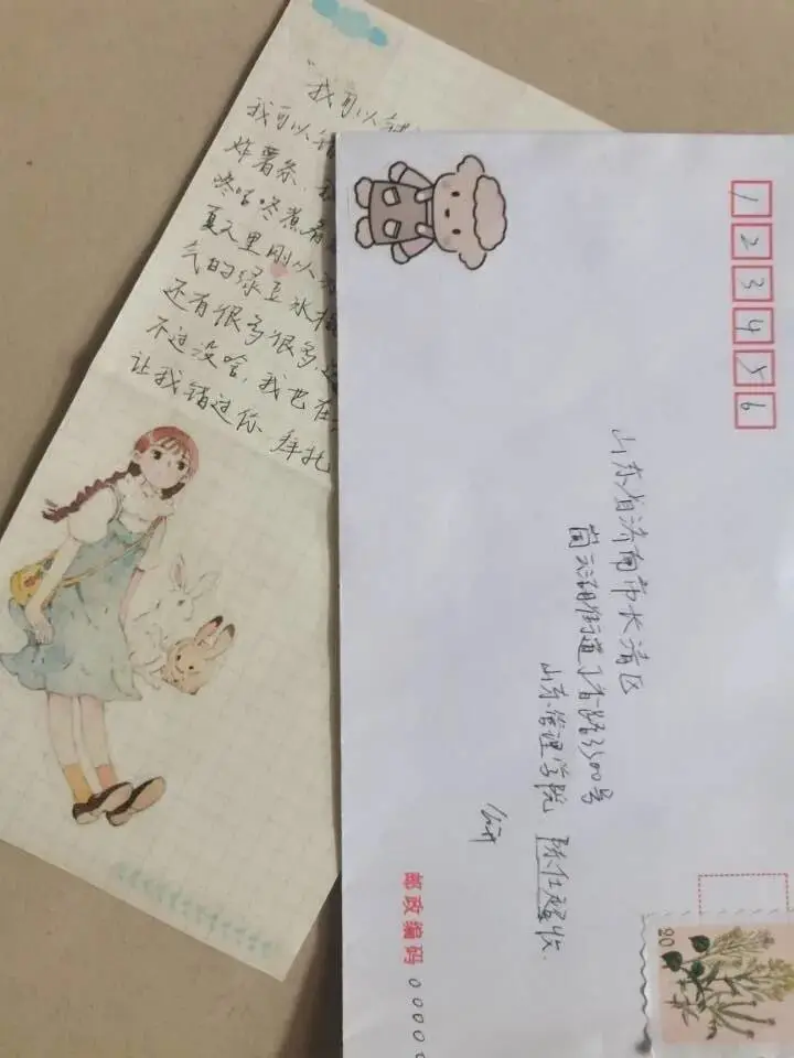 "我可以
我可以
炸薯条,
咚咕咚煮着
夏天里刚从
气的绿豆冰
还有很多很多,
不过没啥,我也在
让我错过你 拜托
123456
山东省济南市长清区
街道丁香路3500号
山东管理学院 陈仕 收.
邮政编码 00000
20